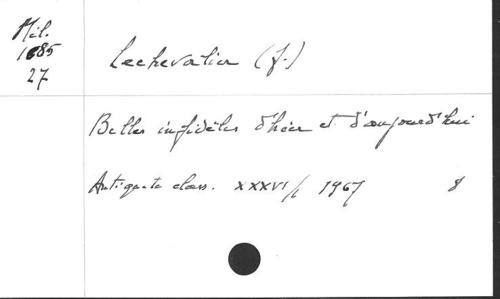 Mil.
1085
27
Lechevalier (J.)
Belles infidèles d'hier et d'aujourd'hui
Antiquité class. XXXVI/1 1967 8